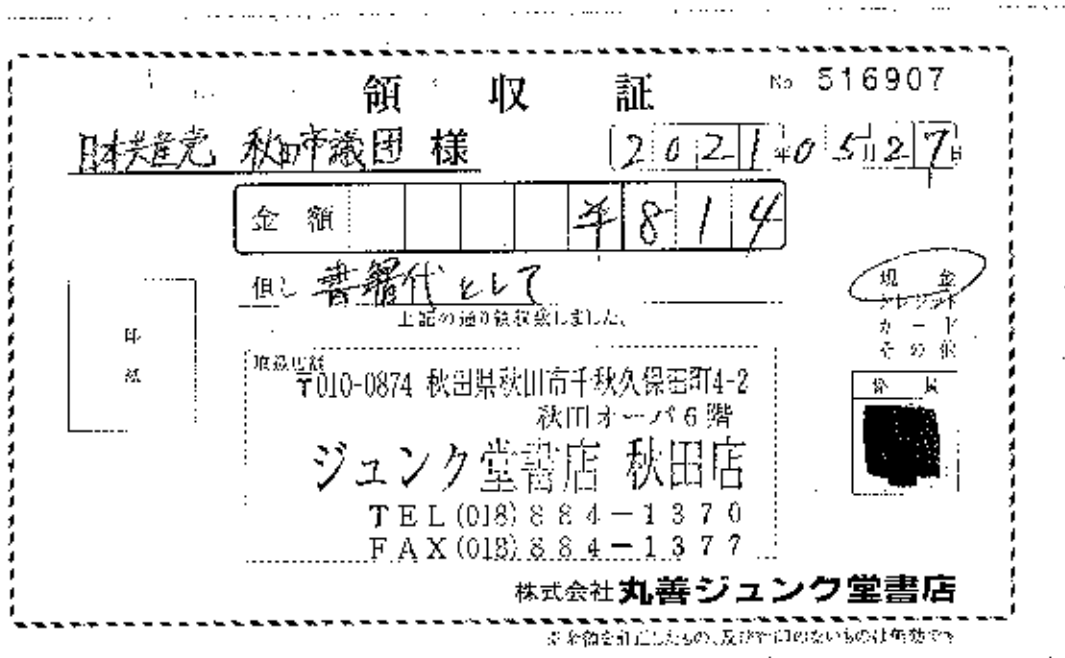 領収証 No 516907
日本共産党 秋田市議団 様 2021年05月27日
金額 ¥814
但し 書籍代として
上記の通り領収致しました。
現金
クレジット
カード
その他
印紙
取扱店舗
〒010-0874 秋田県秋田市千秋久保田町4-2
秋田オーパ6階
ジュンク堂書店 秋田店
TEL(018)884-1370
FAX(018)884-1377
係員
株式会社丸善ジュンク堂書店
※金額を訂正したもの、及び社印のないものは無効です